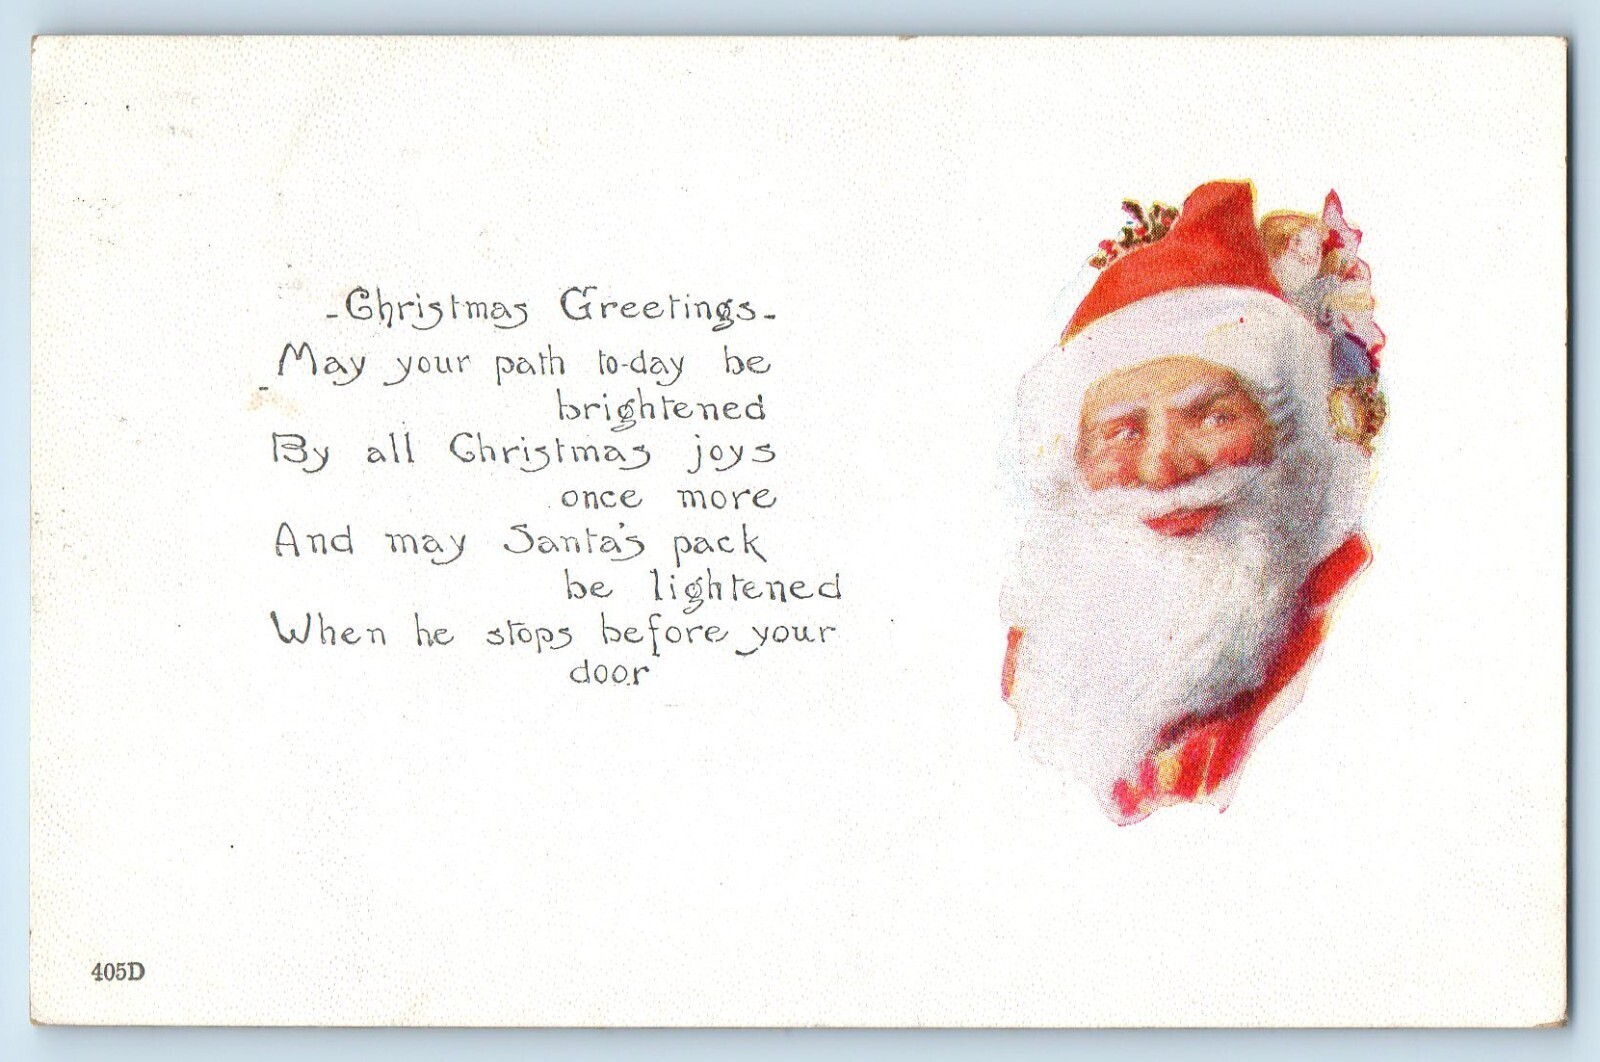 -Christmas Greetings-
May your path to-day be
brightened
By all Christmas joys
once more
And may Santa's pack
be lightened
When he stops before your
door
405D